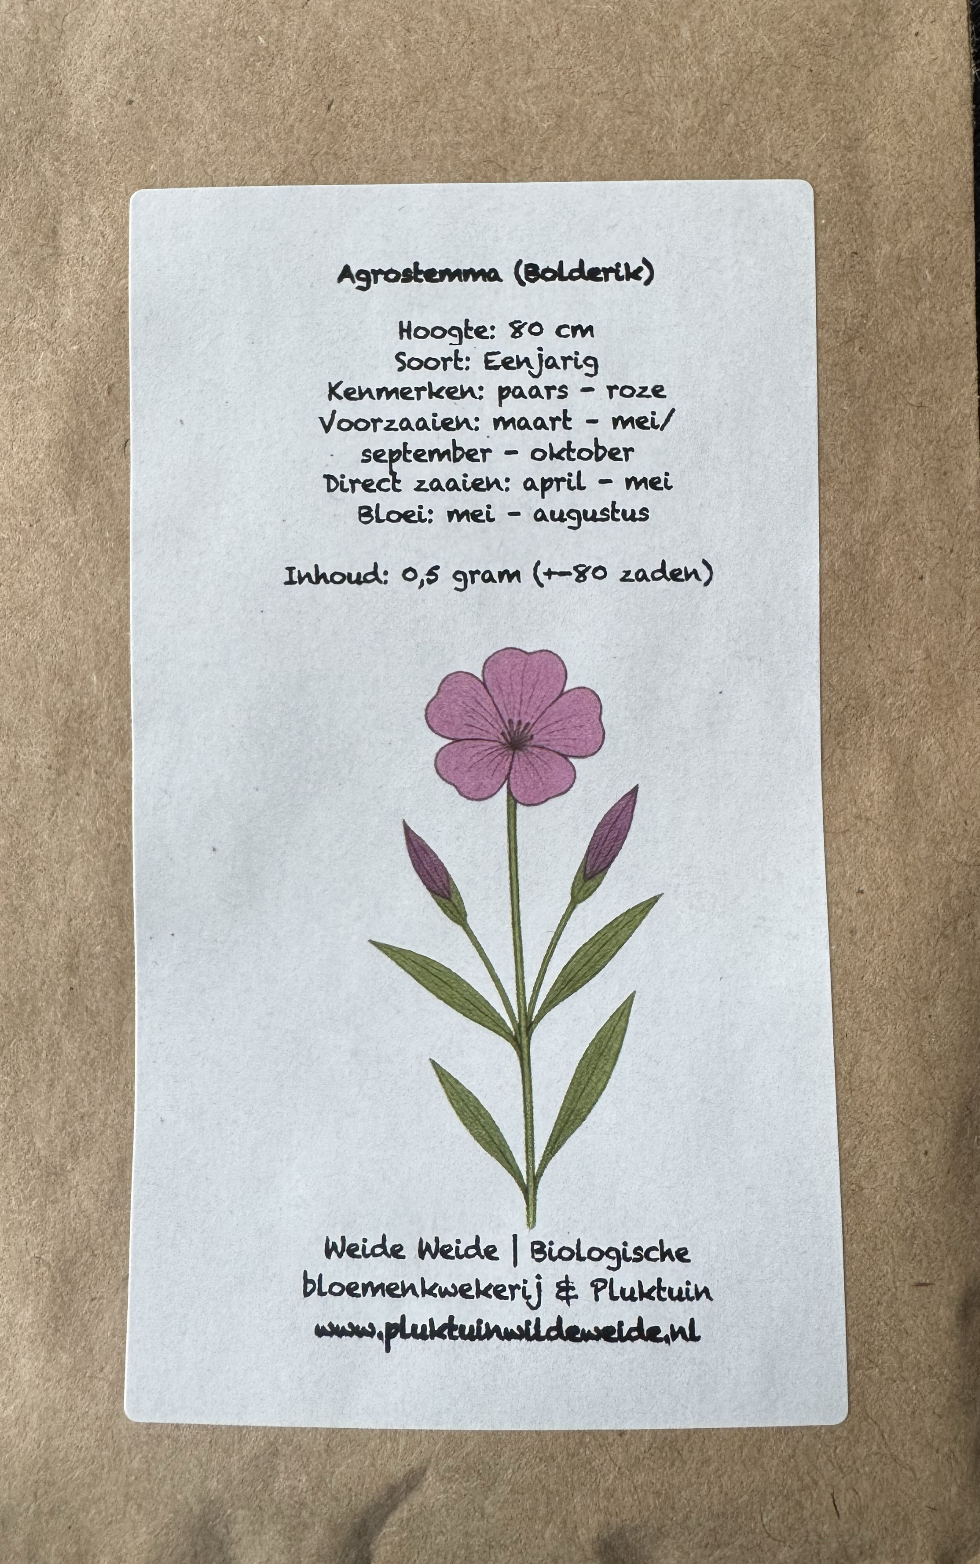 Agrostemma (Bolderik)
Hoogte: 80 cm
Soort: Eenjarig
Kenmerken: paars - roze
Voorzaaien: maart - mei/
september - oktober
Direct zaaien: april - mei
Bloei: mei - augustus
Inhoud: 0,5 gram (+-80 zaden)
Weide Weide | Biologische
bloemenkwekerij & Pluktuin
www.pluktuinwildeweide.nl